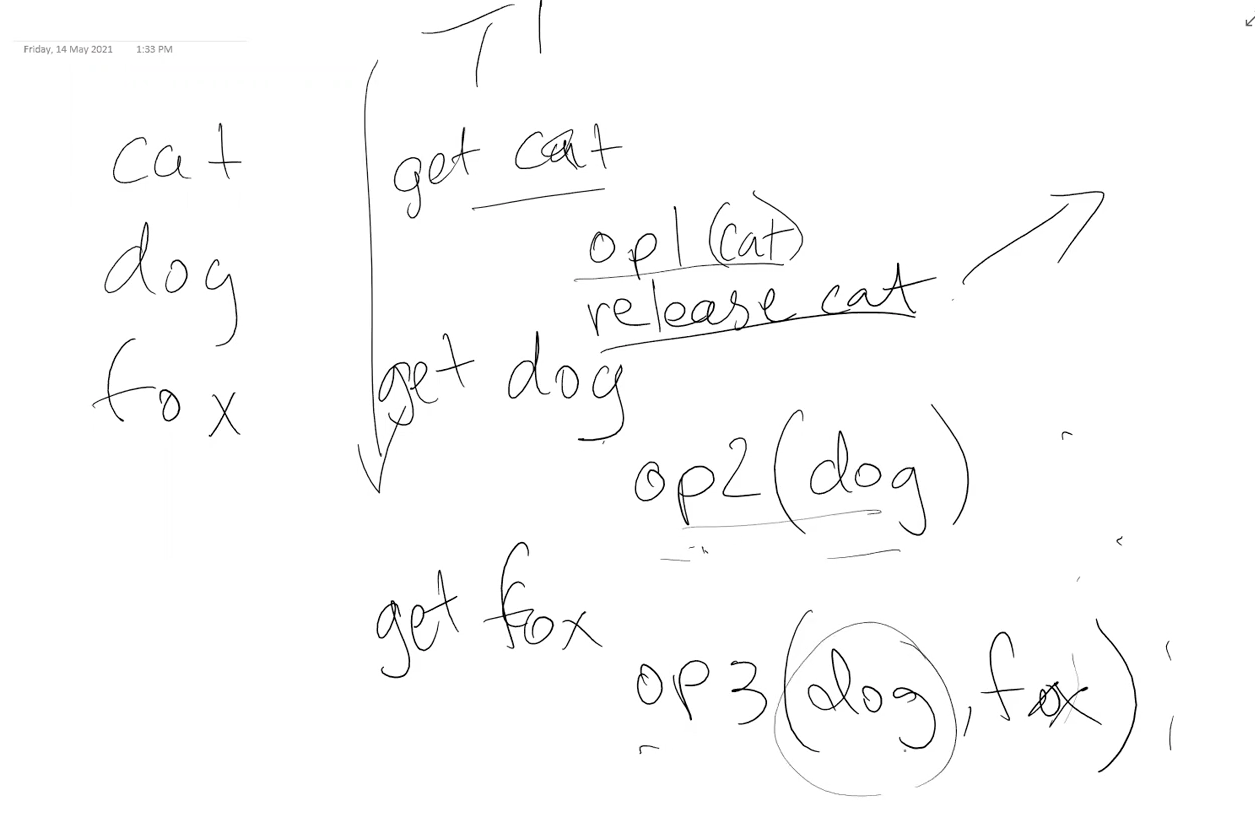 Friday, 14 May 2021 1:33 PM
T1
cat
dog
fox
get cat
op1(cat)
release cat
get dog
op2(dog)
get fox
op3(dog, fox)